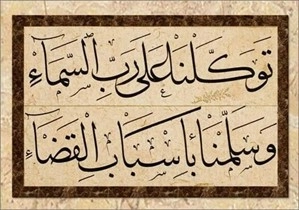 توكلنا على رب السماء
وسلمنا بأسباب القضاء